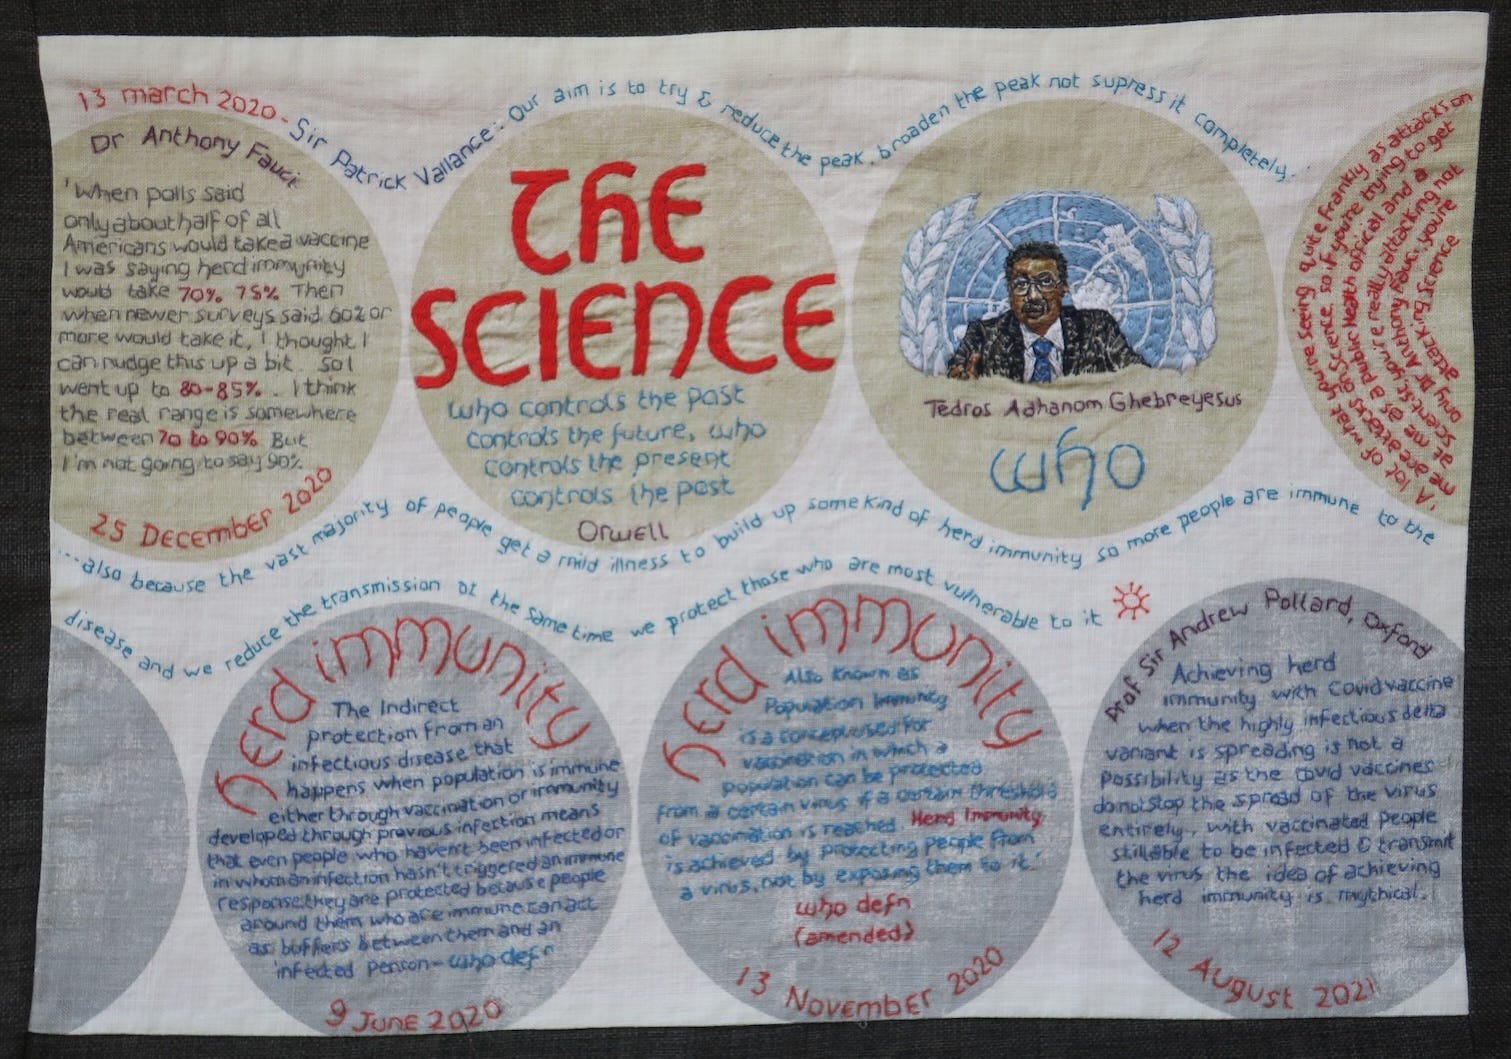 13 march 2020 - Sir Patrick Vallance: Our aim is to try & reduce the peak, broaden the peak not supress it completely...
Dr Anthony Fauci
'When polls said
only about half of all
Americans would take a vaccine
I was saying herd immunity
would take 70% 75% Then
when newer surveys said 60% or
more would take it, I thought I
can nudge this up a bit so I
went up to 80-85%. I think
the real range is somewhere
between 70 to 90% But
I'm not going to say 90%
25 December 2020
THE
SCIENCE
who controls the past
controls the future, who
controls the present
controls the past
Orwell
Tedros Adhanom Ghebreyesus
who
'A lot of what you're seeing quite frankly as attacks on
me are attacks on Science, so if you're trying to get
at me as a public health official and a
Scientist you're really attacking not
only Dr Anthony Fauci, you're
attacking Science
...also because the vast majority of people get a mild illness to build up some kind of herd immunity so more people are immune to the
disease and we reduce the transmission at the same time we protect those who are most vulnerable to it
herd immunity
The Indirect
protection from an
infectious disease that
happens when population is immune
either through vaccination or immunity
developed through previous infection means
that even people who haven't been infected or
in whom an infection hasn't triggered an immune
response they are protected because people
around them who are immune can act
as buffers between them and an
infected person - who defn
9 June 2020
herd immunity
Also known as
Population Immunity
is a concept used for
vaccination in which a
population can be protected
from a certain virus if a certain threshold
of vaccination is reached. Herd Immunity
is achieved by protecting people from
a virus, not by exposing them to it.'
who defn
(amended)
13 November 2020
Prof Sir Andrew Pollard, Oxford
Achieving herd
immunity with Covid vaccine
when the highly infectious delta
variant is spreading is not a
possibility as the covid vaccines
do not stop the spread of the virus
entirely, with vaccinated people
still able to be infected & transmit
the virus the idea of achieving
herd immunity is mythical.
12 August 2021